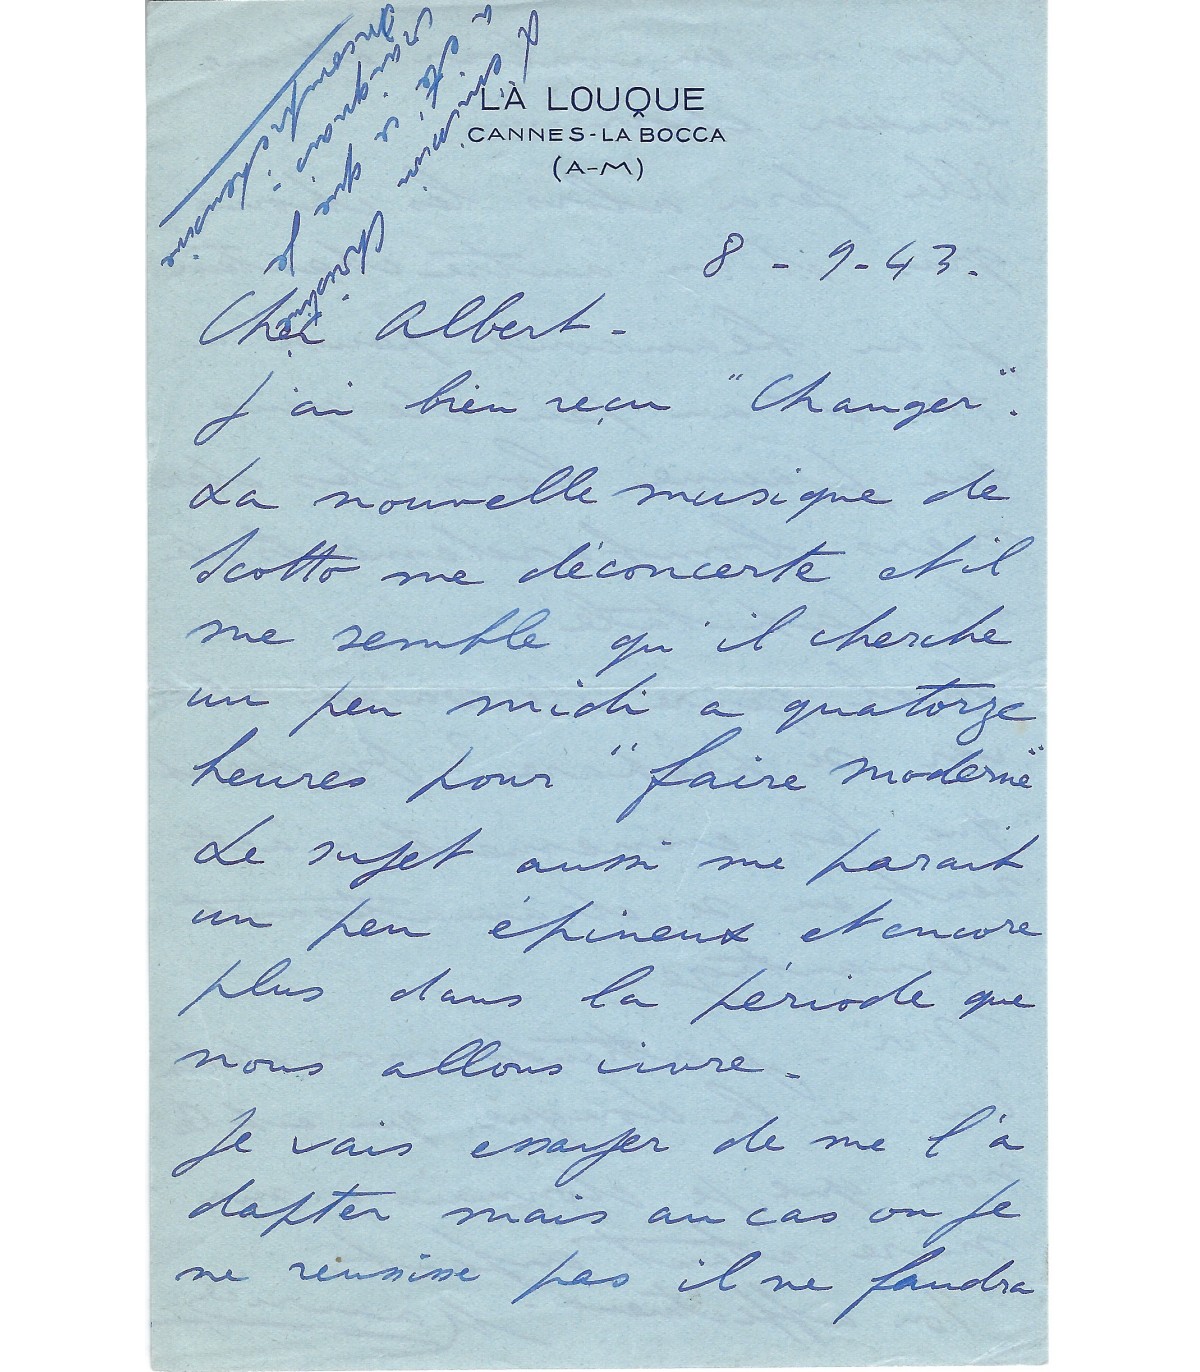 LA LOUQUE
CANNES-LA BOCCA
(A-M)
8 - 9 - 43.
Cher Albert -
J'ai bien reçu "Changer".
La nouvelle musique de
Scotto me déconcerte et il
me semble qu'il cherche
un peu midi a quatorze
heures pour "faire moderne"
Le sujet aussi me parait
un peu épineux et encore
plus dans la période que
nous allons vivre -
Je vais essayer de me l'a
dapter mais au cas ou je
ne reussisse pas il ne faudra